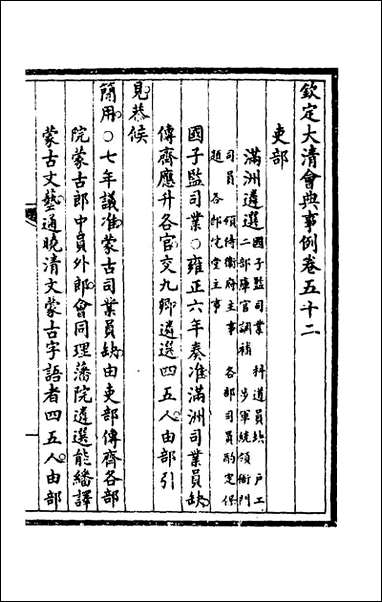 欽定大清會典事例卷五十二
吏部
滿洲遴選
國子監司業 科道員缺 戶工
二部庫官調補 步軍統領衙門
司員 領侍衛府主事 各部司員酌定保
題 各部院堂主事
國子監司業○雍正六年奏准滿洲司業員缺
傳齊應升各官交九卿遴選四五人由部引
見恭候
簡用○七年議准蒙古司業員缺由吏部傳齊各部
院蒙古郎中員外郎會同理藩院遴選能繙譯
蒙古文藝通曉清文蒙古字語者四五人由部